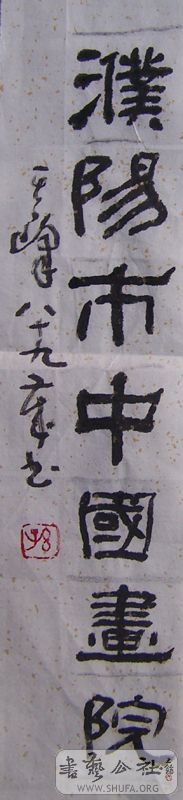 濮陽市中國畫院
天峰八十九岁书
書藝公社
WWW.SHUFA.ORG